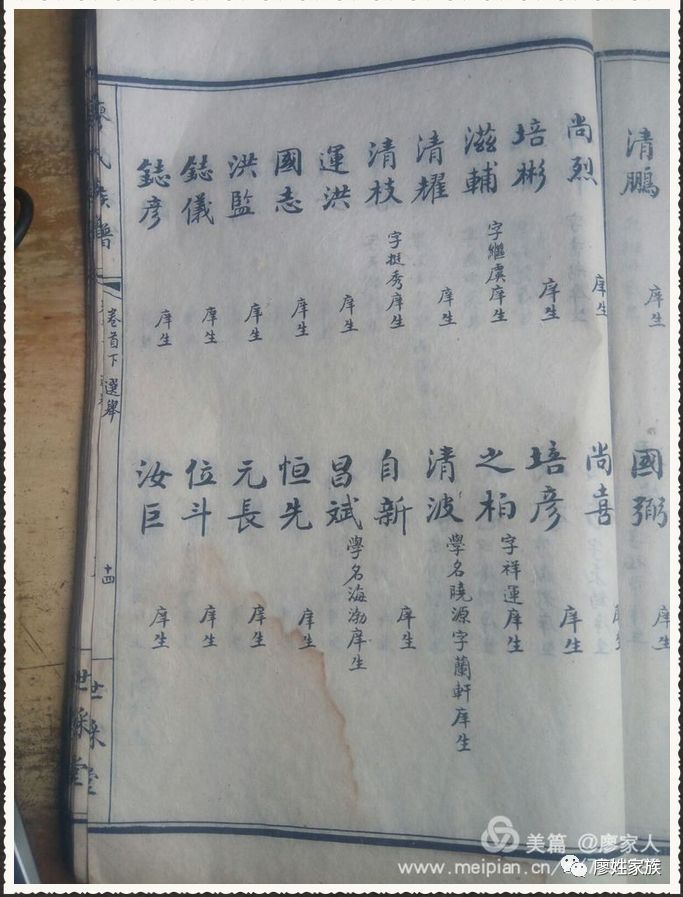 清鵬 庠生
國弼 庠生
尚烈 庠生
尚喜 庠生
培彬 庠生
培彦 庠生
滋輔 字繼虞庠生
之柏 字祥運庠生
清耀 庠生
清波 學名曉源字蘭軒庠生
清枝 字挺秀庠生
自新 庠生
運洪 庠生
昌斌 學名海渤庠生
國志 庠生
恒先 庠生
洪監 庠生
元長 庠生
鋕儀 庠生
位斗 庠生
鋕彦 庠生
汝巨 庠生
廖氏族譜
卷首下 選舉
十四
世綵堂
美篇 @廖家人
www.meipian.cn/
廖姓家族